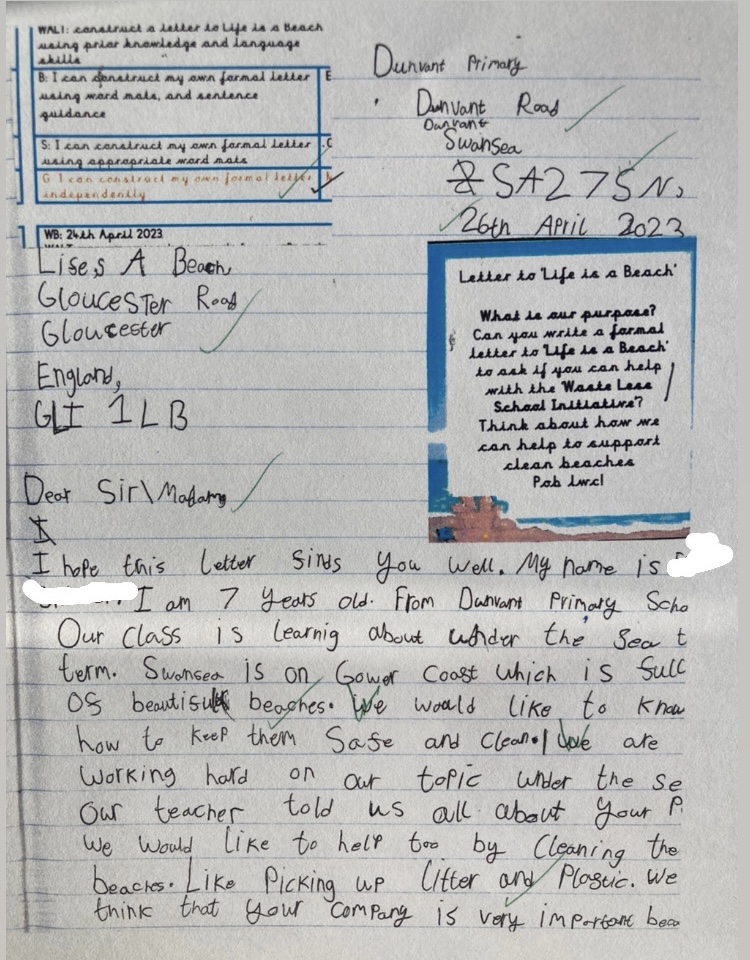 WALT: construct a letter to Life is a Beach
using prior knowledge and language
skills
B: I can construct my own formal letter
using word mats, and sentence
guidance
S: I can construct my own formal letter
using appropriate word mats
G: I can construct my own formal letter
independently
WB: 24th April 2023
Dunvant Primary
Dunvant Road
Dunvant
Swansea
SA2 7SN,
26th April 2023
Lises A Beach,
Gloucester Road
Gloucester
England,
GLI 1LB
Letter to 'Life is a Beach'
What is our purpose?
Can you write a formal
letter to 'Life is a Beach'
to ask if you can help
with the Waste Less
School Initiative?
Think about how we
can help to support
clean beaches
Pob lwc!
Dear Sir\Madam,
I
I hope this letter sinds you well. My name is
I am 7 years old. From Dunvant Primary Scho
Our class is learnig about under the Sea t
term. Swansea is on Gower Coast which is sull
Os beautisul beaches. We would like to know
how to keep them Sase and clean. We are
working hard on our topic under the se
Our teacher told us all about your P
We would like to help too by Cleaning the
beaches. Like Picking up litter and Plastic. We
think that your company is very important beca